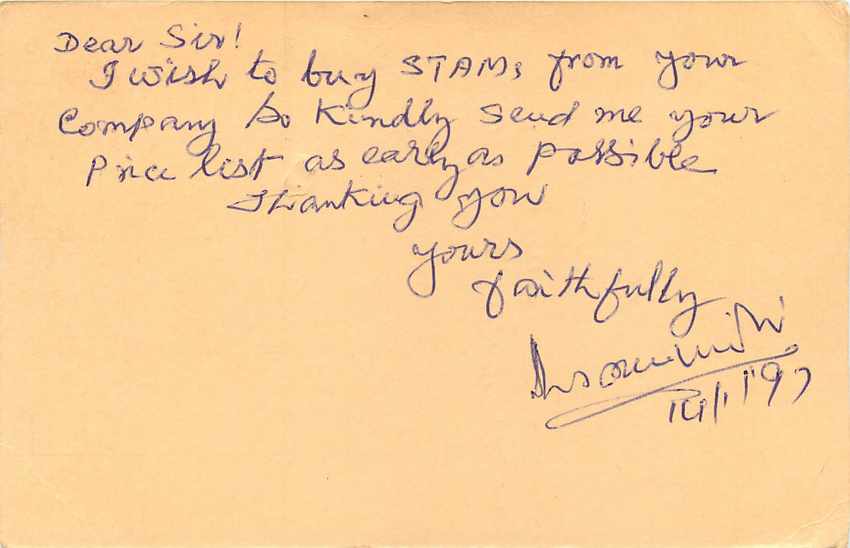 Dear Sir!
I wish to buy STAMs from your
Company so Kindly Send me your
Price list as early as possible
Thanking you
yours
faithfully